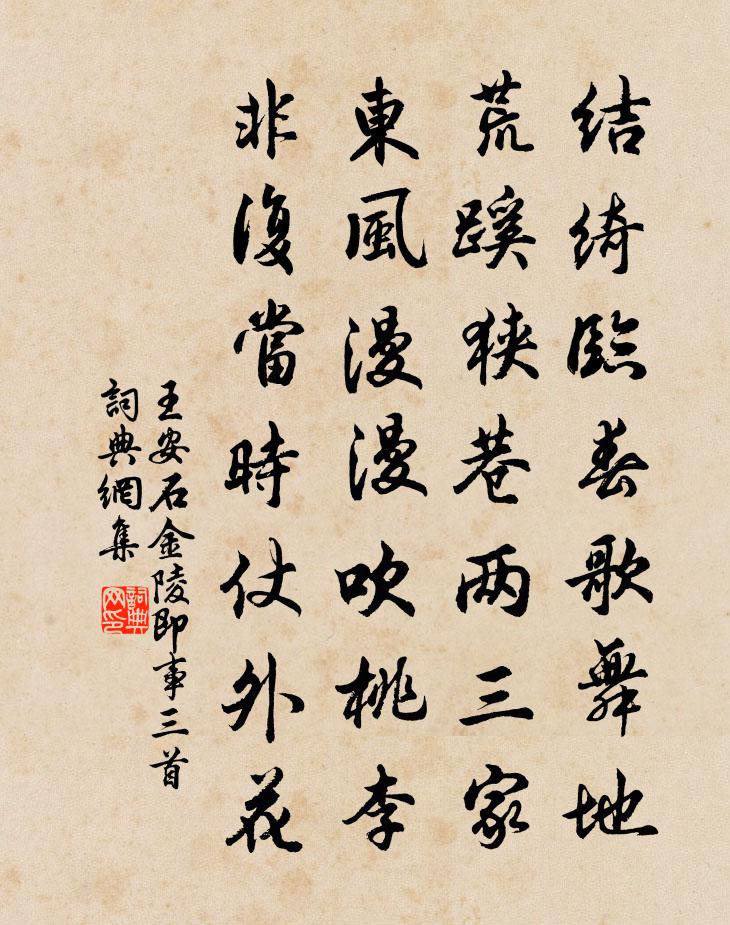 結綺臨春歌舞地
荒蹊狹巷兩三家
東風漫漫吹桃李
非復當時仗外花
王安石金陵即事三首
詞典網集
詞典网印